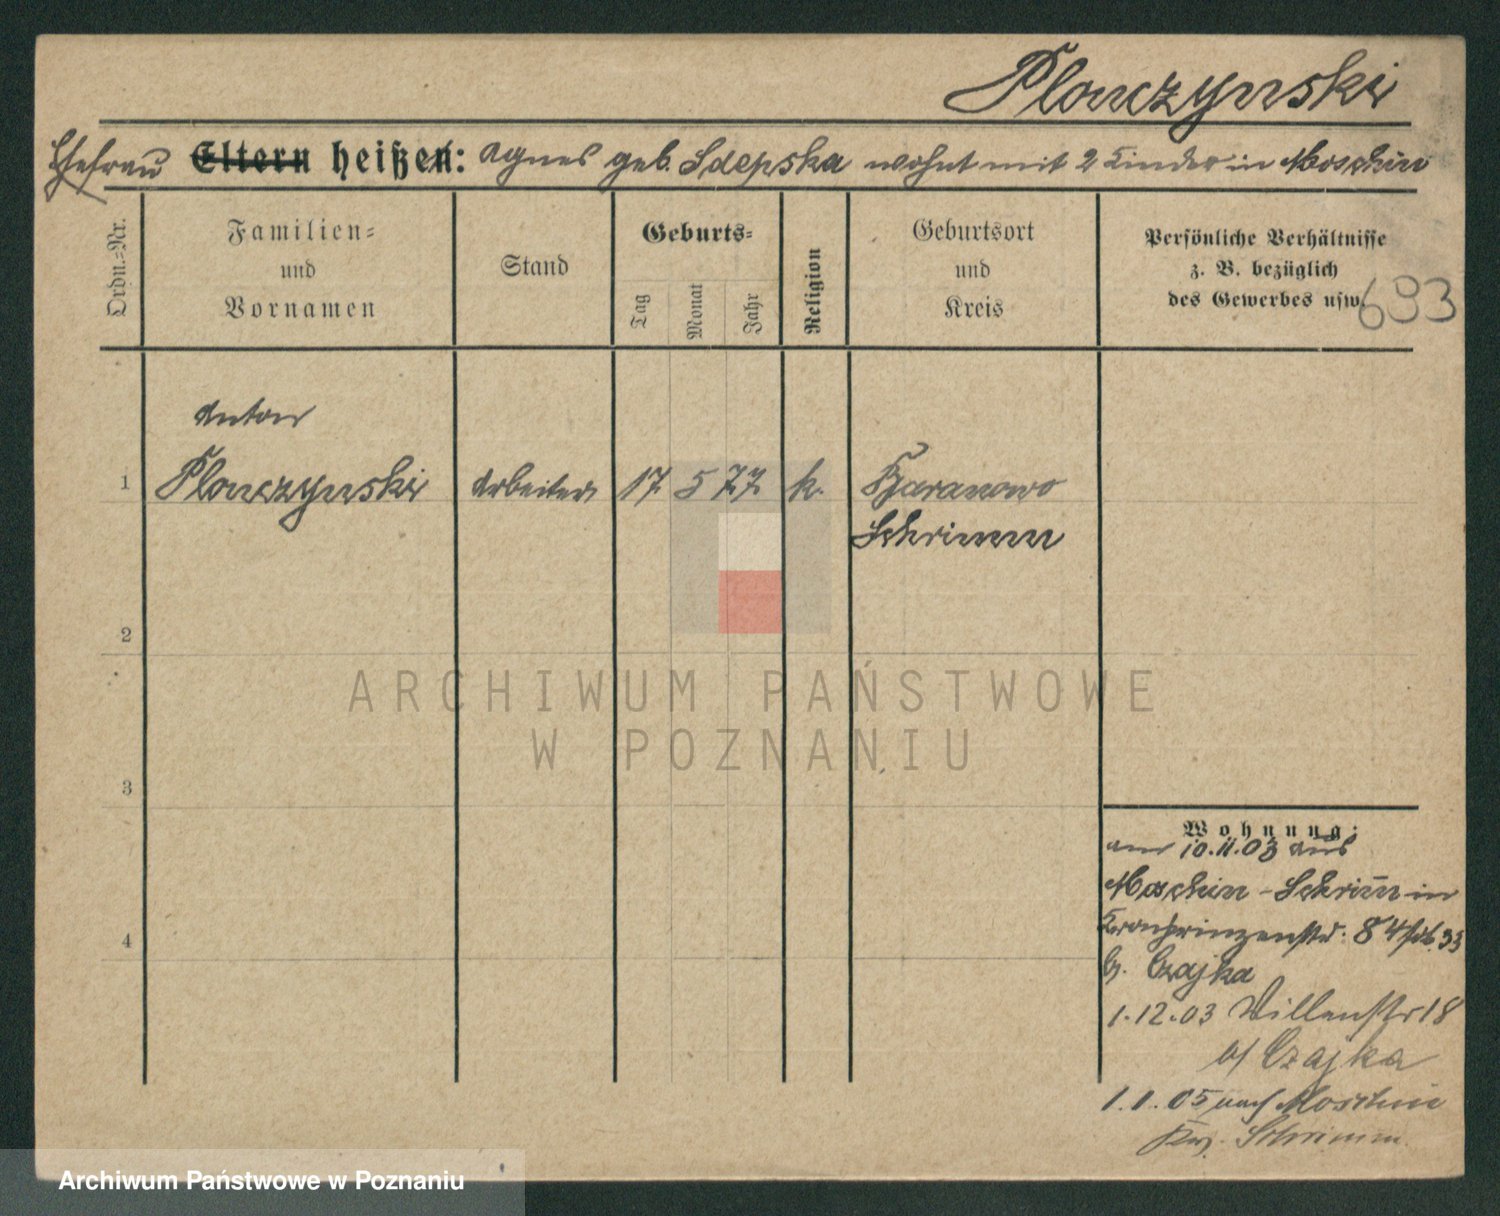 Plonczynski
Ehefrau Eltern heißen: Agnes geb. Sdepska wohnt mit 2 Kinder in Moschin
Ordn.-Nr.
Familien-
und
Vornamen
Stand
Geburts-
Tag
Monat
Jahr
Religion
Geburtsort
und
Kreis
Persönliche Verhältnisse
z. B. bezüglich
des Gewerbes usw.
693
Anton
1 Plonczynski Arbeiter 17 5 77 k. Baranowo
Schrimm
2
3
4
ARCHIWUM PAŃSTWOWE
W POZNANIU
Wohnung:
am 10.11.03 aus
Moschin - Schrim̅ in
Kronprinzenstr. 84
b. Czajka
1.12.03 Villenstr 18
b/ Czajka
1.1.05 nach Moschin
Krs. Schrimm.
Archiwum Państwowe w Poznaniu